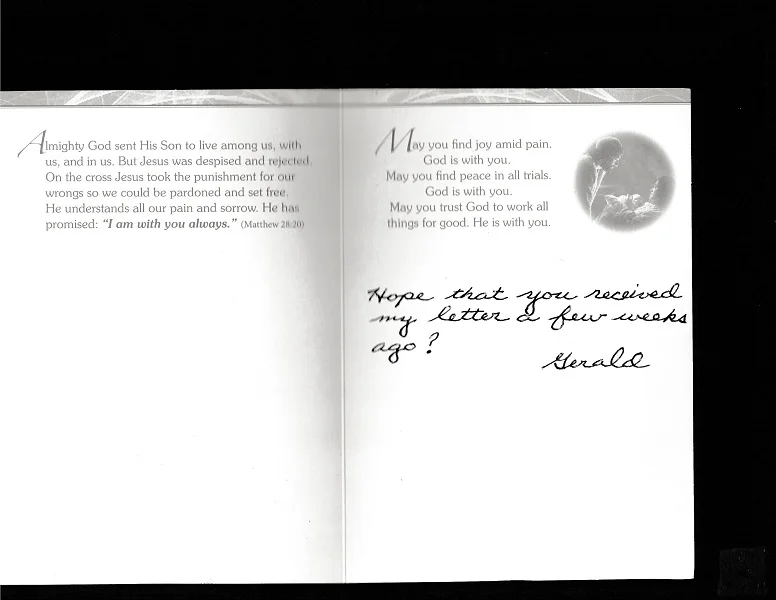 Almighty God sent His Son to live among us, with
us, and in us. But Jesus was despised and rejected.
On the cross Jesus took the punishment for our
wrongs so we could be pardoned and set free.
He understands all our pain and sorrow. He has
promised: “I am with you always.” (Matthew 28:20)
May you find joy amid pain.
God is with you.
May you find peace in all trials.
God is with you.
May you trust God to work all
things for good. He is with you.
Hope that you received
my letter a few weeks
ago?
Gerald